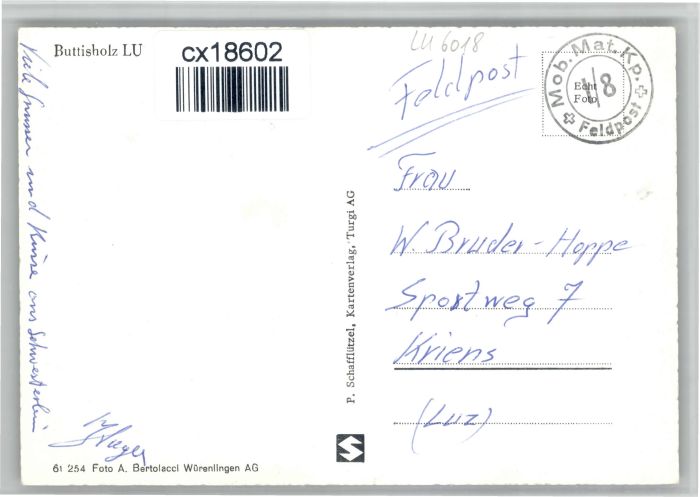 Buttisholz LU
cx18602
LU 6018
Feldpost
Mob. Mat. Kp.
Feldpost
1/8
Echt
Foto
Frau
W. Bruder-Hoppe
Sportweg 7
Kriens
(Luz)
P. Schafflützel, Kartenverlag, Turgi AG
und Küsse
61 254 Foto A. Bertolacci Würenlingen AG